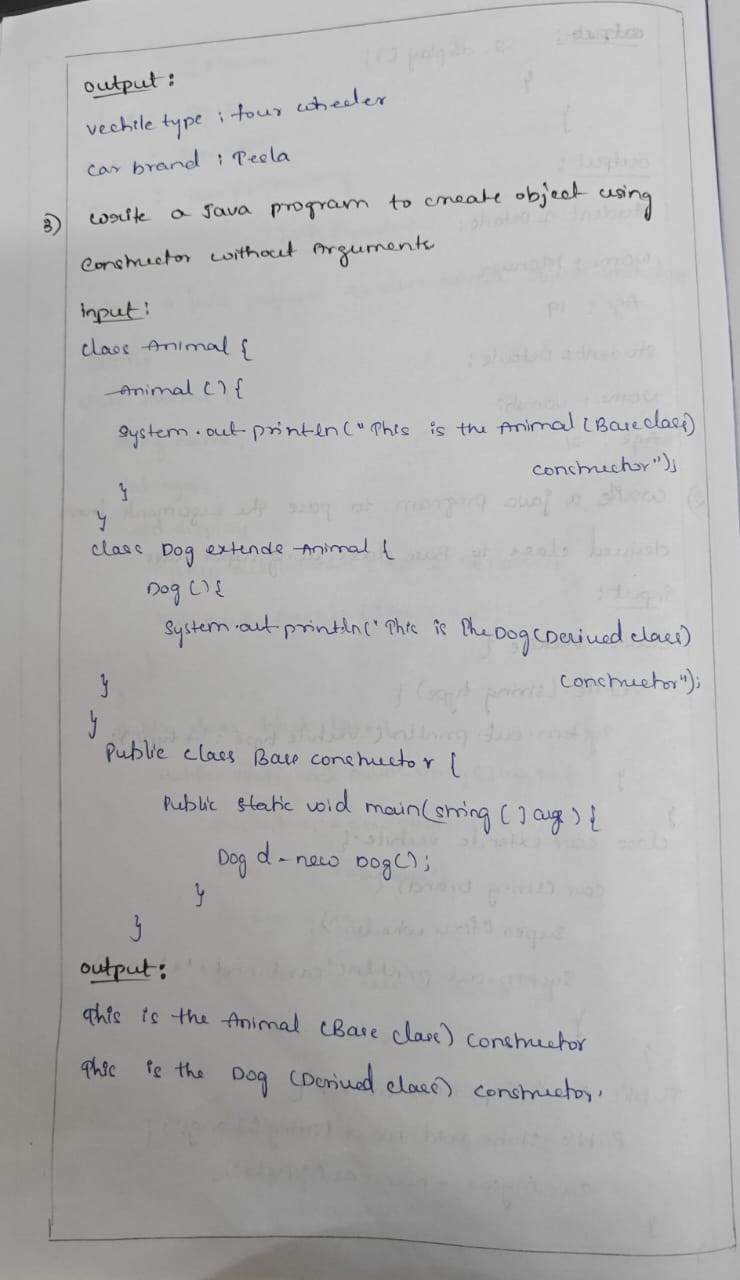 output:
vechile type : four wheeler
car brand : Tesla
3) write a Java program to create object using
constructor without Arguments
input:
class Animal {
Animal () {
System.out.println("This is the Animal (Base class)
constructor");
}
}
class Dog extends Animal {
Dog () {
System.out.println("This is The Dog (Derived class)
constructor");
}
}
Public class Base constructor {
Public static void main(string [] arg) {
Dog d = new Dog();
}
}
output:
This is the Animal (Base class) constructor
This is the Dog (Derived class) constructor.